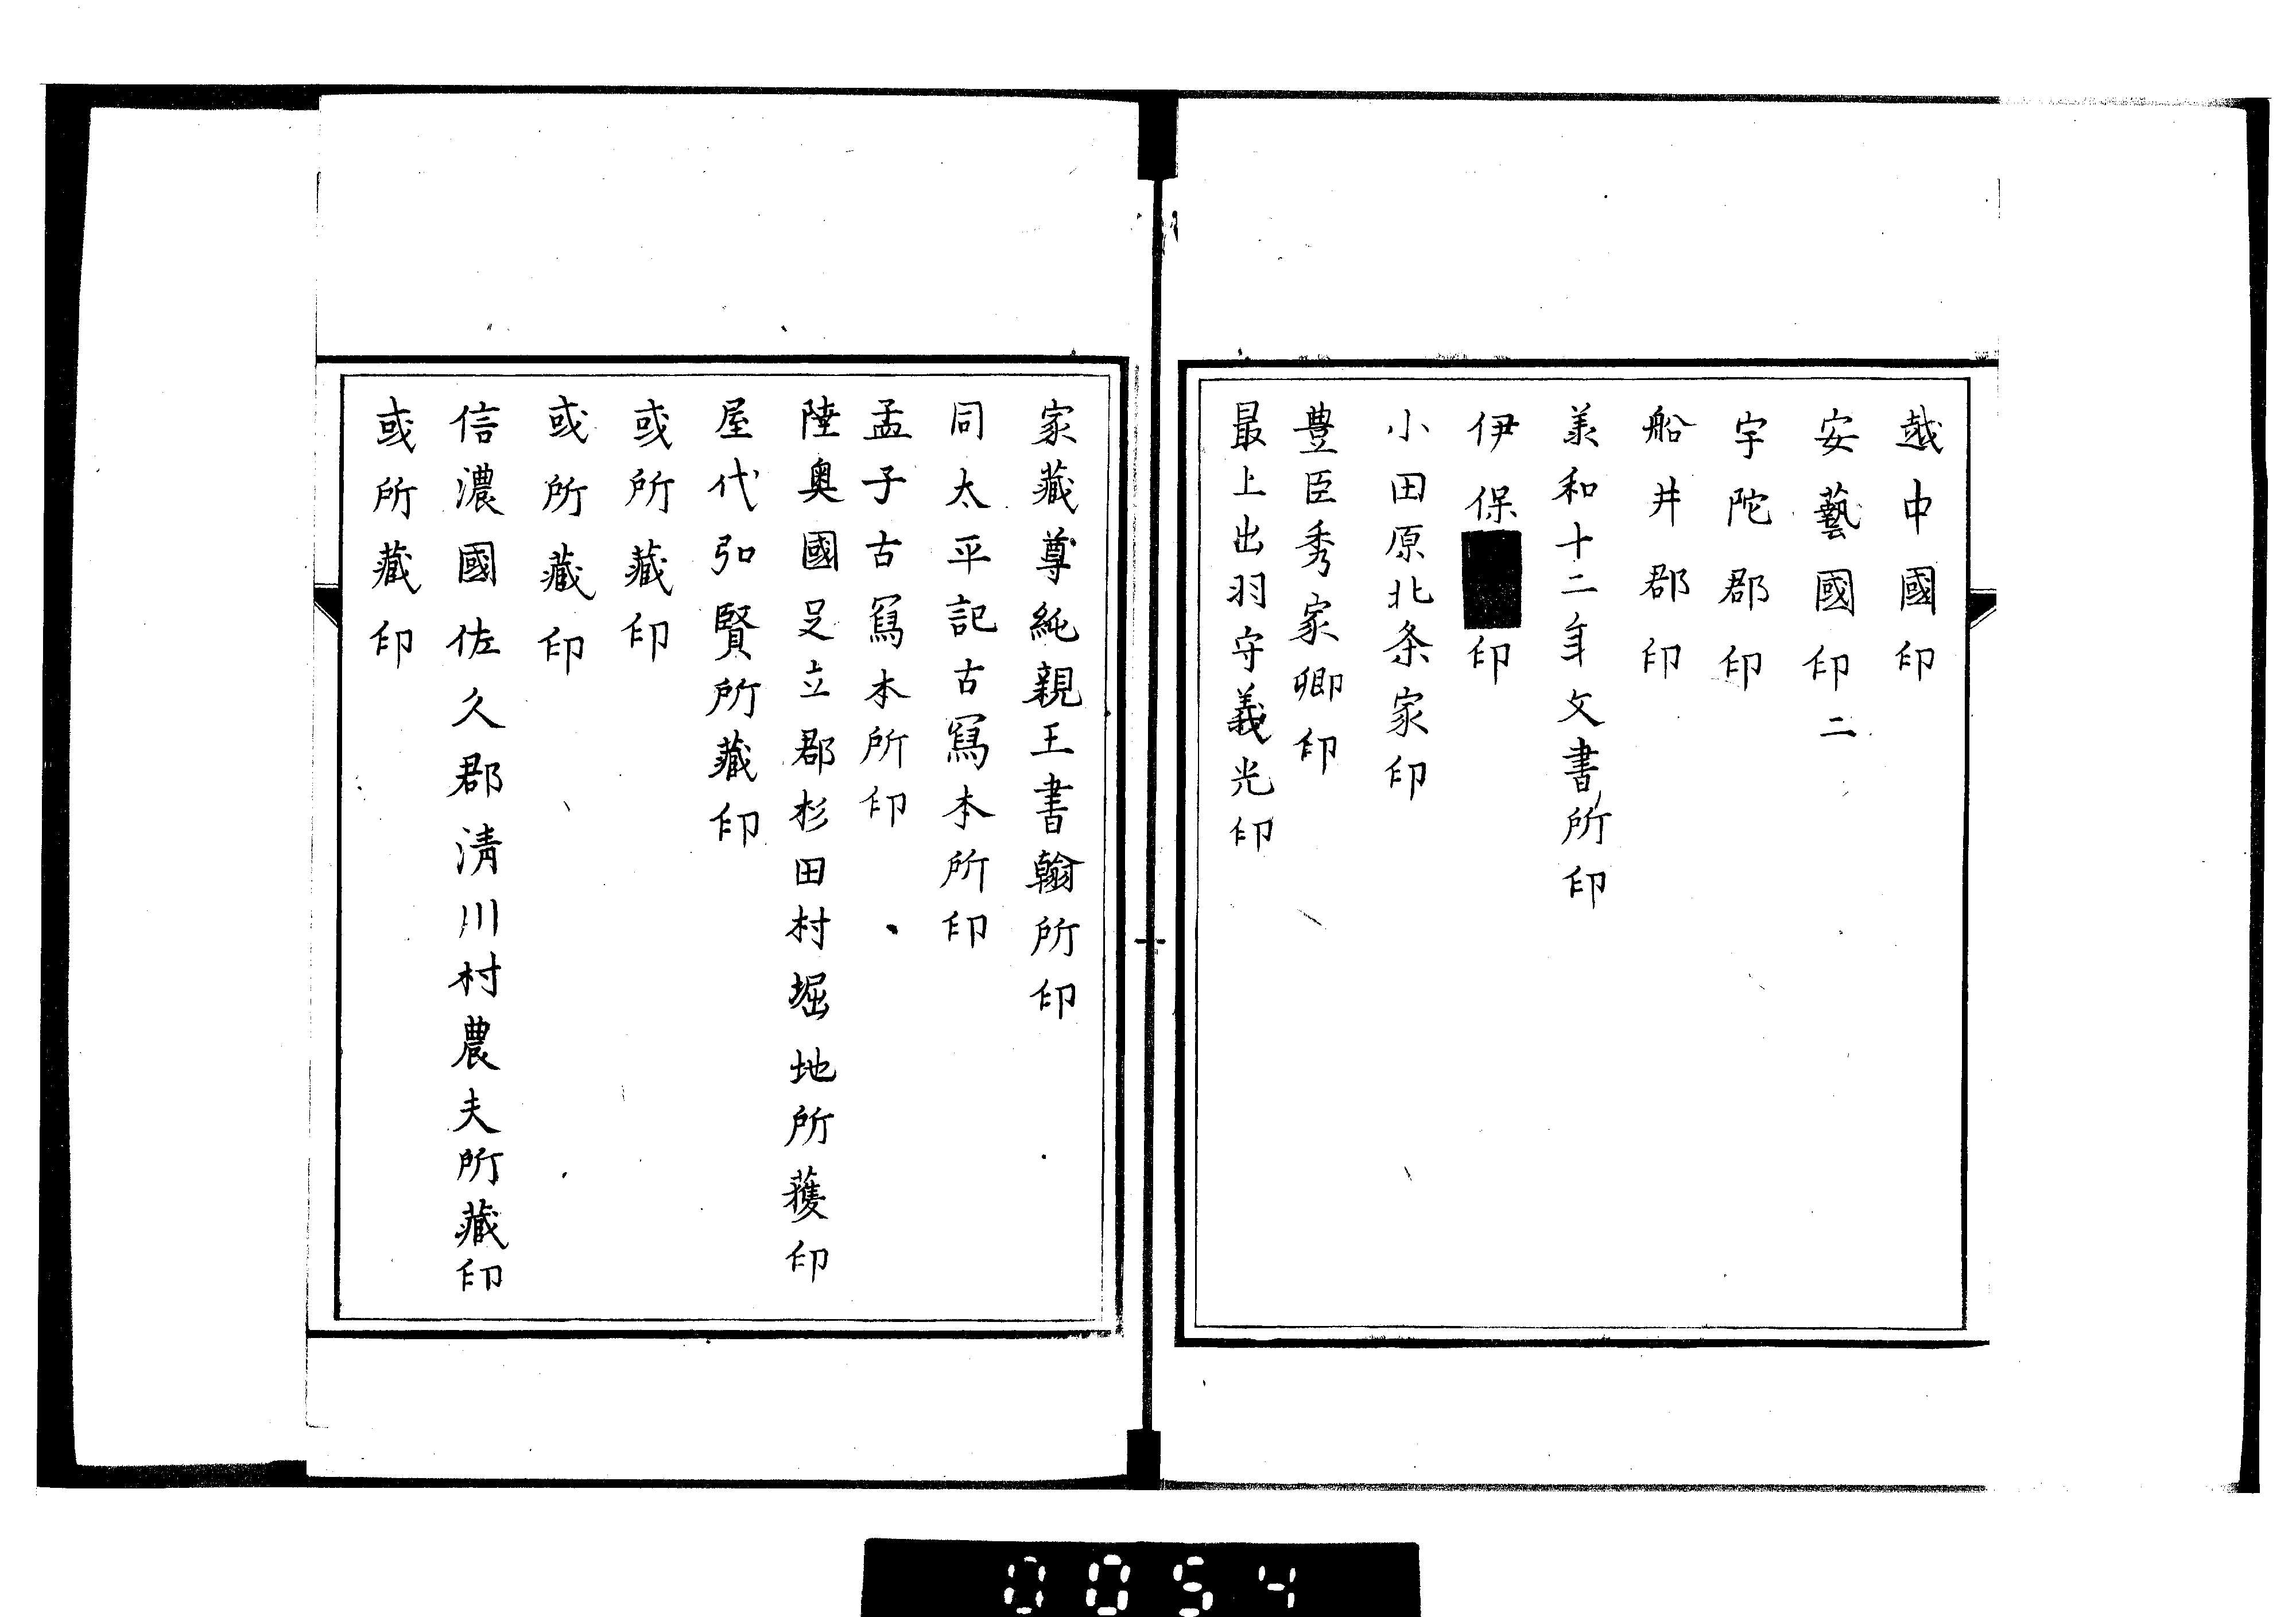 越中國印
安藝國印二
宇陀郡印
船井郡印
承和十二年文書所印
伊保■印
小田原北条家印
豊臣秀家卿印
最上出羽守義光印
家藏尊純親王書翰所印
同太平記古寫本所印
孟子古寫本所印
陸奥國足立郡杉田村堀地所獲印
屋代弘賢所藏印
或所藏印
或所藏印
信濃國佐久郡清川村農夫所藏印
或所藏印
0054